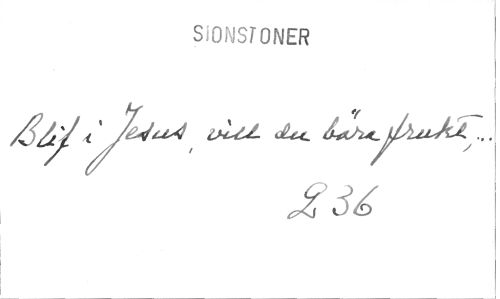 SIONSTONER
Blif i Jesus, vill du bära frukt,...
L 36